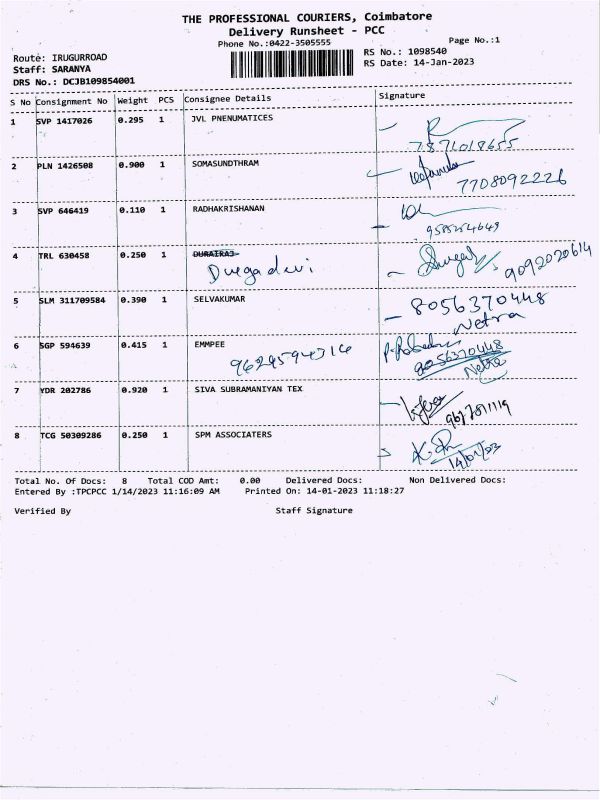 THE PROFESSIONAL COURIERS, Coimbatore
Delivery Runsheet - PCC
Phone No.:0422-3505555
Page No.:1
Route: IRUGURROAD
RS No.: 1098540
Staff: SARANYA
RS Date: 14-Jan-2023
DRS No.: DCJB109854001
S No Consignment No Weight PCS Consignee Details Signature
1 SVP 1417026 0.295 1 JVL PNENUMATICES
7871018655
2 PLN 1426508 0.900 1 SOMASUNDTHRAM
7708092226
3 SVP 646419 0.110 1 RADHAKRISHANAN
4 TRL 630458 0.250 1 DURAIRAJ
Durgadevi
9092020614
5 SLM 311709584 0.390 1 SELVAKUMAR
8056370448
Netra
6 SGP 594639 0.415 1 EMMPEE
9056370448
Netra
7 YDR 202786 0.920 1 SIVA SUBRAMANIYAN TEX
8 TCG 50309286 0.250 1 SPM ASSOCIATERS
14/01/23
Total No. Of Docs: 8 Total COD Amt: 0.00 Delivered Docs: Non Delivered Docs:
Entered By :TPCPCC 1/14/2023 11:16:09 AM Printed On: 14-01-2023 11:18:27
Verified By Staff Signature